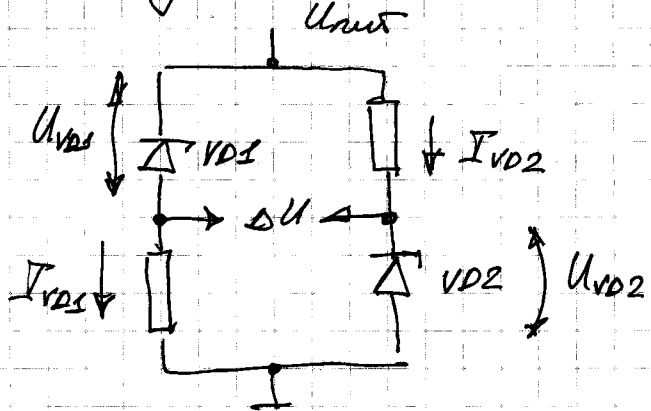 Uпит
UVD1
VD1
IVD2
ΔU
IVD1
VD2
UVD2